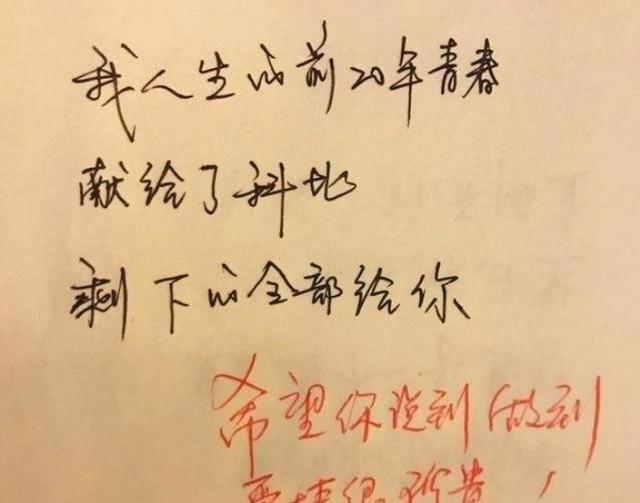 我人生的前20年青春
献给了科比
剩下的全部给你
希望你说到做到
很珍贵！